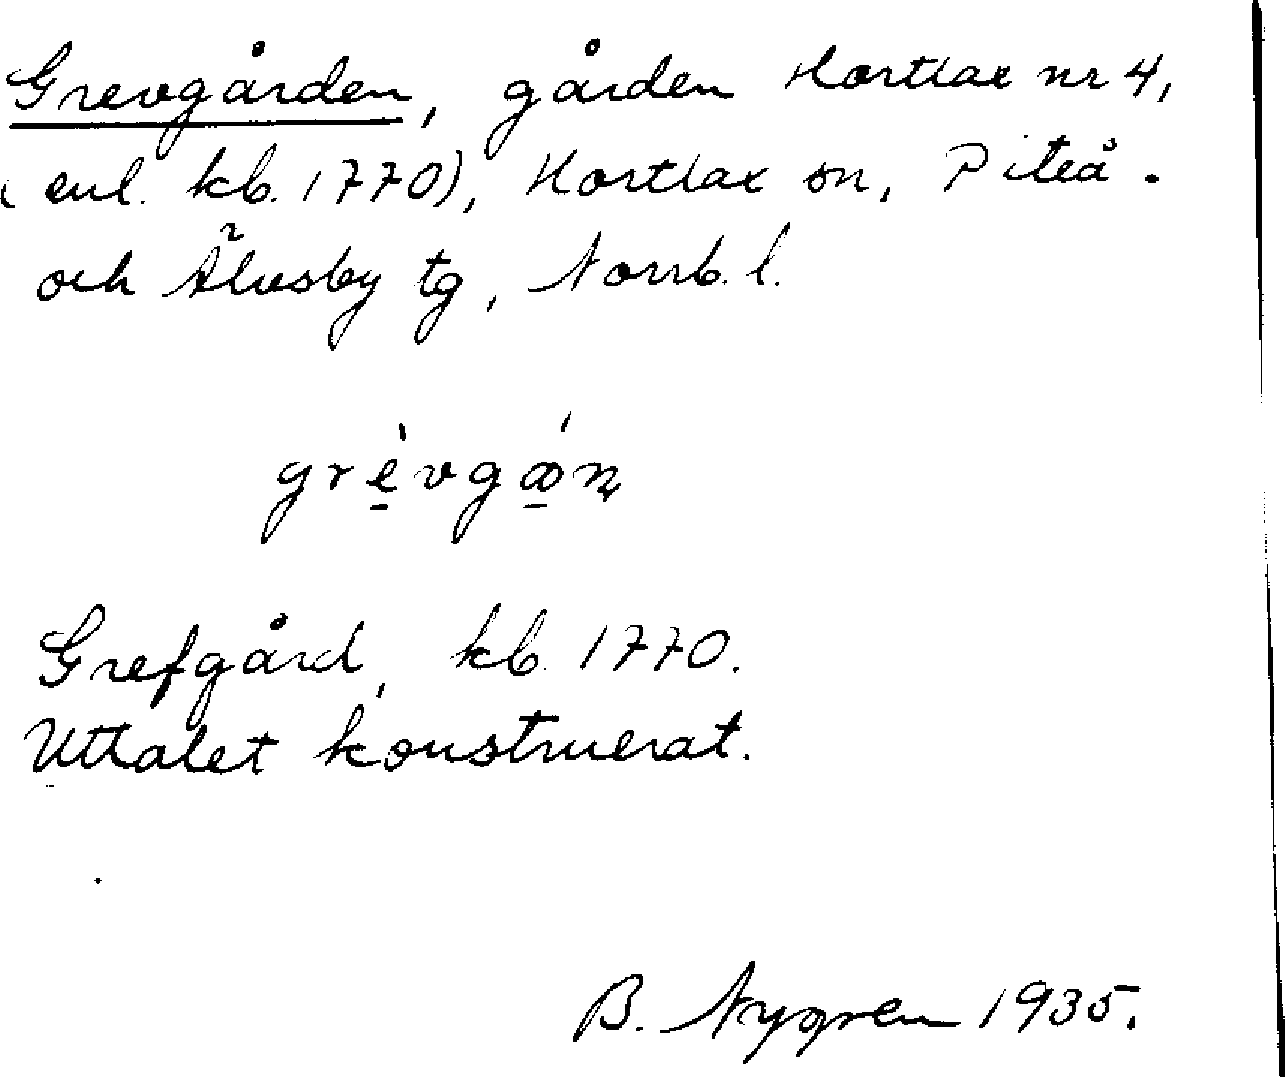 Grevgården, gården Hortlax nr 4,
(enl. kb. 1770), Hortlax sn, Piteå-
och Älvsby tg, Norrb. l.
grèvgǻn
Grefgård, kb. 1770.
Uttalet konstruerat.
B. Nygren 1935.